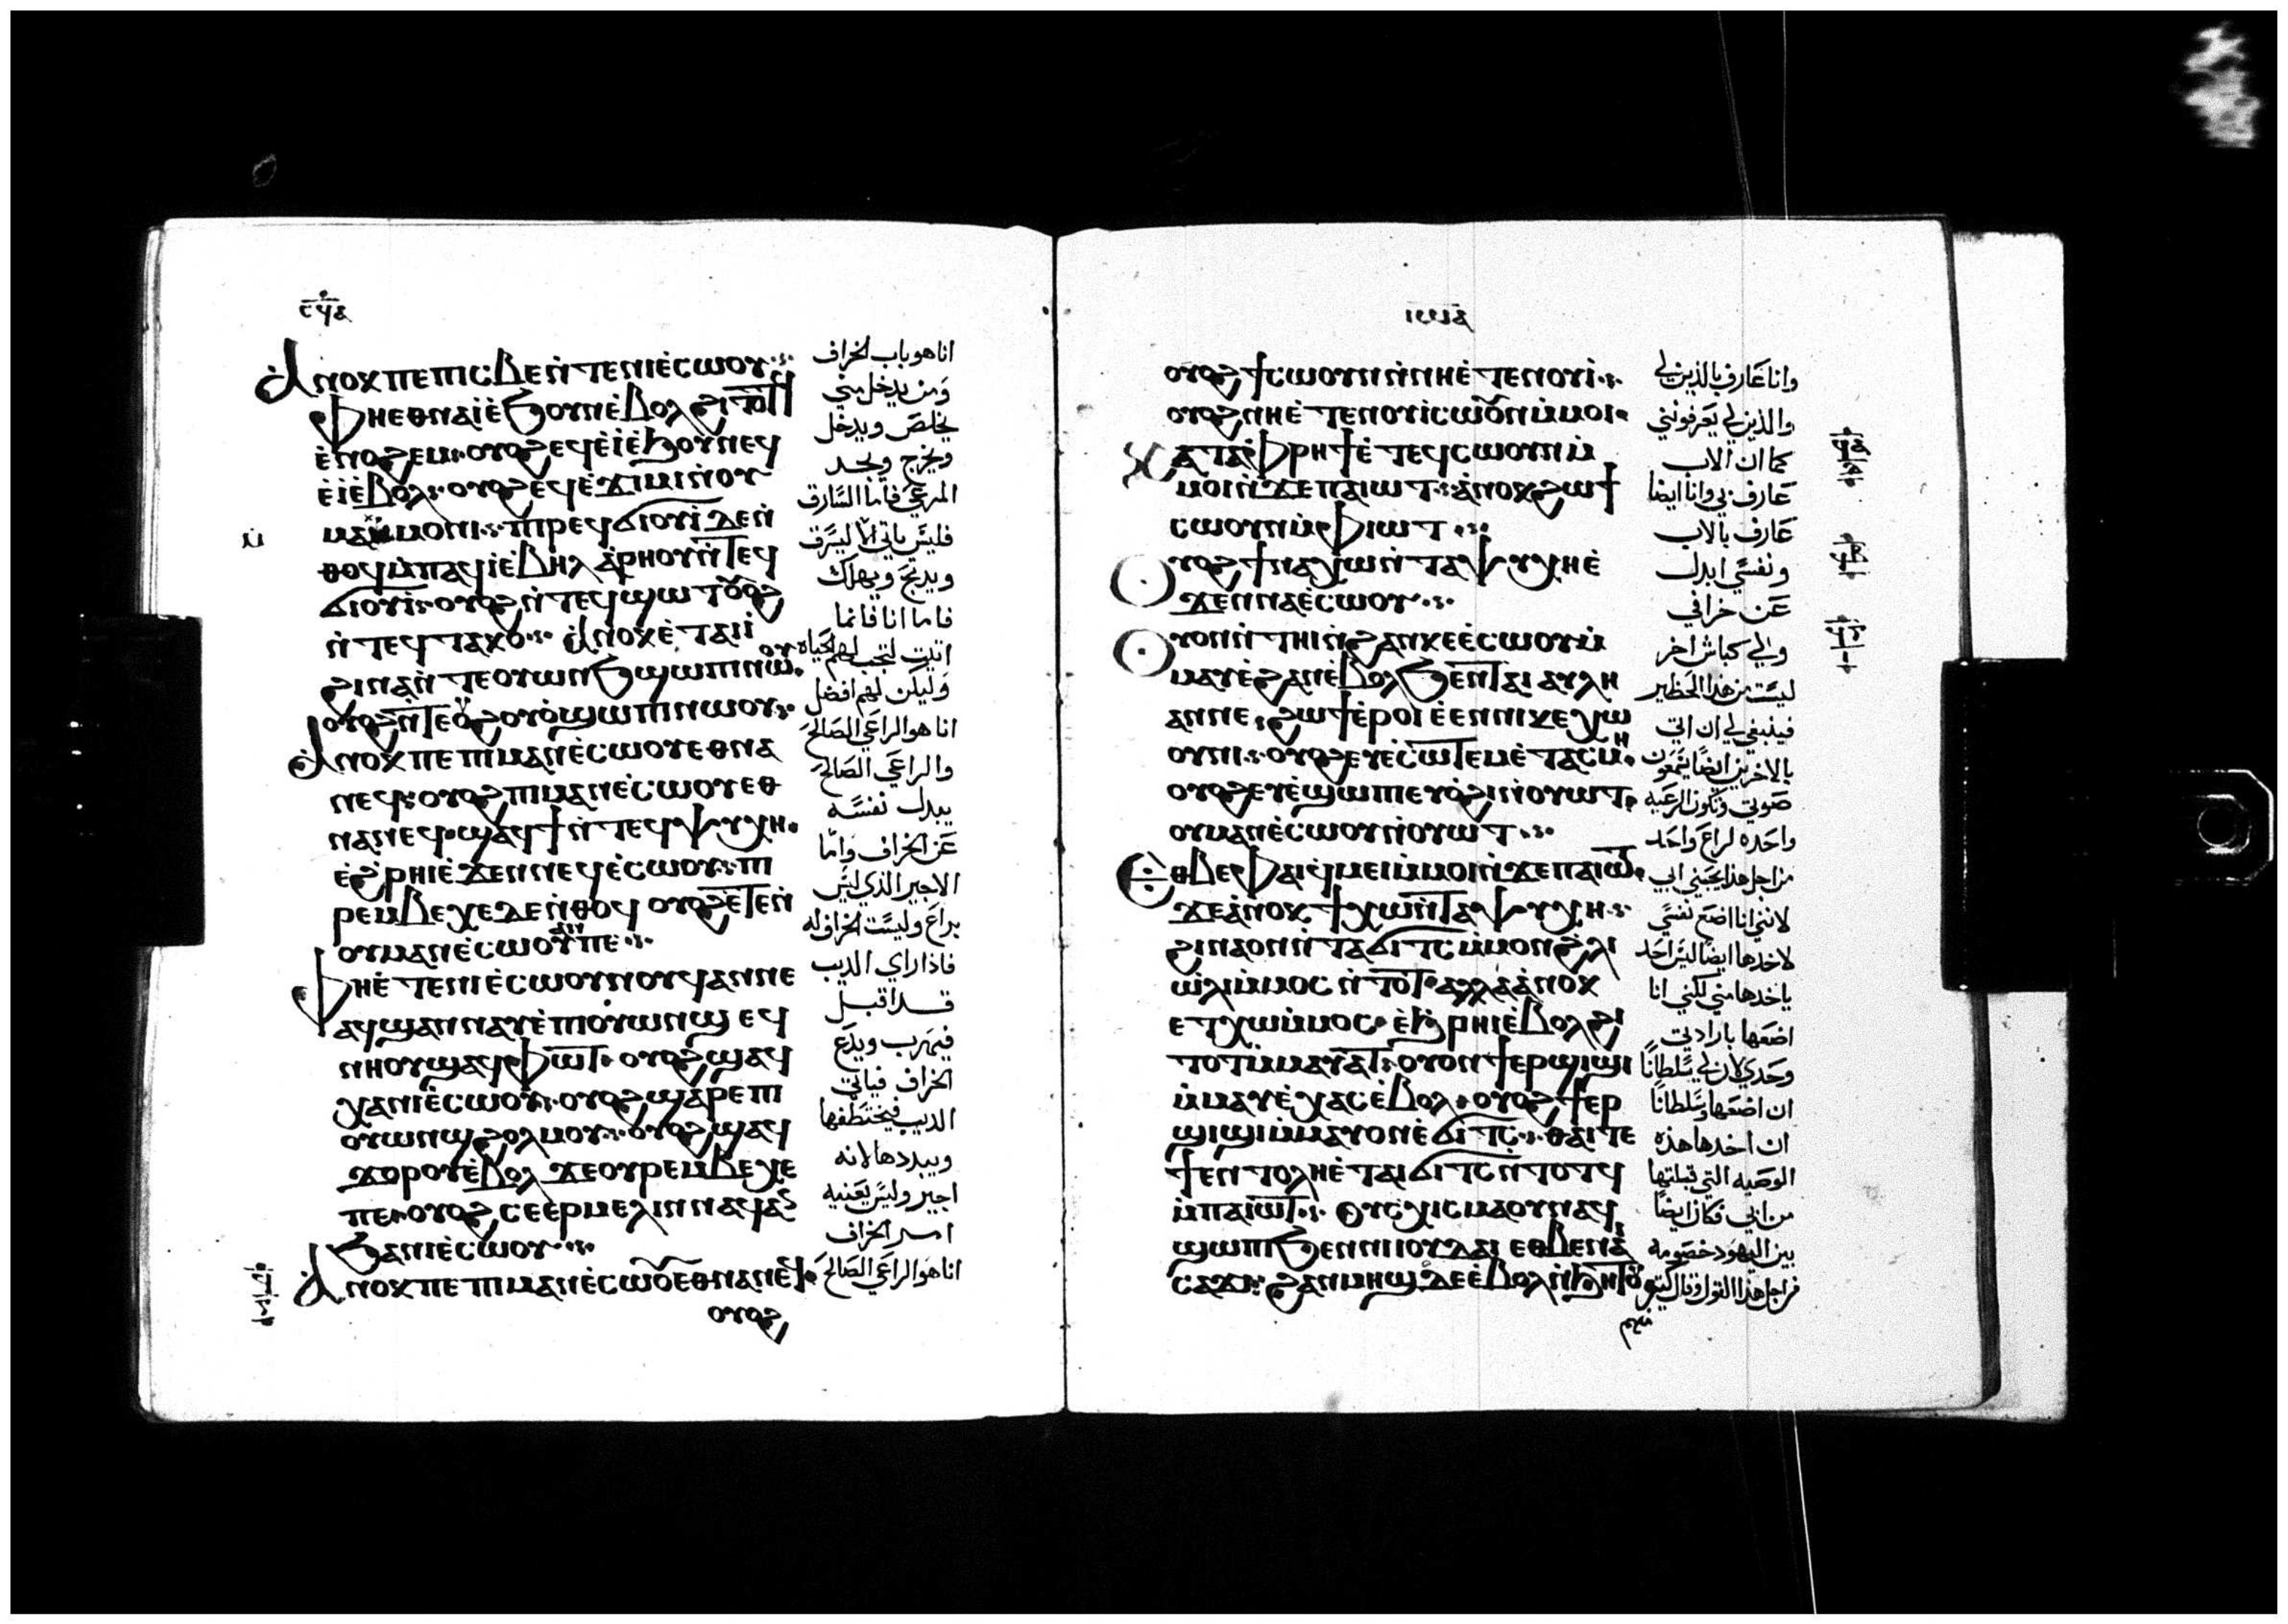 ⲁⲛⲟⲕ ⲡⲉ ⲡⲓⲥⲃⲉ ⲛ̀ⲧⲉ ⲛⲓⲉ̀ⲥⲱⲟⲩ
ⲫⲏ ⲉⲑⲛⲁⲓ̀ ⲉ̀ϧⲟⲩⲛ ⲉ̀ⲃⲟⲗ ϩⲓⲧⲟⲧ
ⲉ̀ⲛⲟϩⲉⲙ ⲟⲩⲟϩ ⲉϥⲉ̀ⲓ̀ ⲉ̀ϧⲟⲩⲛ ⲉϥ
ⲉ̀ⲓ̀ ⲉ̀ⲃⲟⲗ ⲟⲩⲟϩ ⲉϥⲉ̀ϫⲓⲙⲓ ⲛ̀ⲟⲩ
ⲙⲁⲙ̀ⲙⲟⲛⲓ ⲡⲓⲣⲉϥϭⲓⲟⲩⲓ̀ ⲇⲉ ⲛ̀
ⲑⲟϥ ⲙ̀ⲡⲁϥⲓ̀ ⲉ̀ⲃⲏⲗ ⲁⲣⲏⲟⲩ ⲛ̀ⲧⲉϥ
ϭⲓⲟⲩⲓ̀ ⲟⲩⲟϩ ⲛ̀ⲧⲉϥϣⲱⲧ ⲟⲩⲟϩ
ⲛ̀ⲧⲉϥⲧⲁⲕⲟ ⲁⲛⲟⲕ ⲉ̀ⲧⲁⲓⲓ̀
ϩⲓⲛⲁ ⲛ̀ⲧⲉ ⲟⲩⲱⲛϧ ϣⲱⲡⲓ ⲛⲱⲟⲩ
ⲟⲩⲟϩ ⲛ̀ⲧⲉ ⲟⲩϩⲟⲩⲟ̀ ϣⲱⲡⲓ ⲛⲱⲟⲩ
ⲁⲛⲟⲕ ⲡⲉ ⲡⲓⲙⲁⲛⲉ̀ⲥⲱⲟⲩ ⲉⲑⲛⲁ
ⲛⲉϥ ⲟⲩⲟϩ ⲡⲓⲙⲁⲛⲉ̀ⲥⲱⲟⲩ ⲉⲑ
ⲛⲁⲛⲉϥ ϣⲁϥϯ ⲛ̀ⲧⲉϥⲯⲩⲭⲏ
ⲉ̀ϩ̀ⲣⲏⲓ ⲉ̀ϫⲉⲛ ⲛⲉϥⲉ̀ⲥⲱⲟⲩ ⲡⲓ
ⲣⲉⲙⲃⲉⲭⲉ ⲇⲉ ⲛ̀ⲑⲟϥ ⲟⲩⲟϩ ⲉ̀ⲧⲉ ⲛ̀
ⲟⲩⲙⲁⲛⲉ̀ⲥⲱⲟⲩ ⲁⲛ ⲡⲉ
ⲫⲏ ⲉ̀ⲧⲉ ⲛⲓⲉ̀ⲥⲱⲟⲩ ⲛⲟⲩϥ ⲁⲛ ⲛⲉ
ⲁϥϣⲁⲛⲛⲁⲩ ⲉ̀ⲡⲓⲟⲩⲱⲛϣ ⲉϥ
ⲛⲏⲟⲩ ϣⲁϥⲫⲱⲧ ⲟⲩⲟϩ ϣⲁϥ
ⲭⲁ ⲛⲓⲉ̀ⲥⲱⲟⲩ ⲟⲩⲟϩ ϣⲁⲣⲉ ⲡⲓ
ⲟⲩⲱⲛϣ ϩⲟⲗⲙⲟⲩ ⲟⲩⲟϩ ϣⲁϥ
ϫⲟⲣⲟⲩ ⲉ̀ⲃⲟⲗ ϫⲉ ⲟⲩⲣⲉⲙⲃⲉⲭⲉ
ⲡⲉ ⲟⲩⲟϩ ⲥⲉⲉⲣⲙⲉⲗⲓⲛ ⲛⲁϥ ⲁⲛ
ϧⲁ ⲛⲓⲉ̀ⲥⲱⲟⲩ
ⲁⲛⲟⲕ ⲡⲉ ⲡⲓⲙⲁⲛⲉ̀ⲥⲱⲟⲩ ⲉⲑⲛⲁⲛⲉϥ
ⲟⲩⲟϩ
انا هو باب الخراف
ومن يدخل مني
يخلص ويدخل
ويخرج ويجد
المرعى فاما السارق
فليس ياتي الا ليسرق
ويدبح ويهلك
فاما انا فانما
اتيت لتجب لهم الحياه
وليكن لهم افضل
انا هو الراعي الصالح
والراعي الصالح
يبدل نفسه
عن الخراف واما
الاجير الذي ليس
براع وليست الخراف له
فاذا راي الديب
قد اقبل
فيهرب ويدع
الخراف فياتي
الديب فيختطفها
ويبددها لانه
اجير وليس يعنيه
امر الخراف
انا هو الراعي الصالح
ⲟⲩⲟϩ ϯⲥⲱⲟⲩⲛ ⲛ̀ⲛⲏ ⲉ̀ⲧⲉ ⲛⲟⲩⲓ̀
ⲟⲩⲟϩ ⲛⲏ ⲉ̀ⲧⲉ ⲛⲟⲩⲓ̀ ⲥⲱⲟⲩⲛ ⲙ̀ⲙⲟⲓ
ⲕⲁⲧⲁ ⲫⲣⲏϯ ⲉ̀ⲧⲉϥⲥⲱⲟⲩⲛ ⲙ̀
ⲙⲟⲓ ⲛ̀ϫⲉ ⲡⲁⲓⲱⲧ ⲁⲛⲟⲕ ϩⲱ ϯ
ⲥⲱⲟⲩⲛ ⲙ̀ⲫⲓⲱⲧ
ⲟⲩⲟϩ ϯⲛⲁⲭⲱ ⲛ̀ⲧⲁⲯⲩⲭⲏ ⲉ̀
ϫⲉⲛ ⲛⲁⲉ̀ⲥⲱⲟⲩ
ⲟⲩⲟⲛ ⲛ̀ⲧⲏⲓ ⲛ̀ϩⲁⲛⲕⲉⲉ̀ⲥⲱⲟⲩ ⲙ̀
ⲙⲁⲩ ⲉ̀ϩⲁⲛⲉ̀ⲃⲟⲗ ϧⲉⲛ ⲧⲁⲓⲁⲩⲗⲏ
ⲁⲛ ⲛⲉ ϩⲱϯ ⲉ̀ⲣⲟⲓ ⲉ̀ⲉⲛ ⲛⲓⲕⲉⲭⲱ
ⲟⲩⲛⲓ ⲟⲩⲟϩ ⲉⲩⲉ̀ⲥⲱⲧⲉⲙ ⲉ̀ⲧⲁⲥⲙⲏ
ⲟⲩⲟϩ ⲉⲩⲉ̀ϣⲱⲡⲓ ⲉⲩⲟϩⲓ ⲛ̀ⲟⲩⲱⲧ
ⲟⲩⲙⲁⲛⲉ̀ⲥⲱⲟⲩ ⲛ̀ⲟⲩⲱⲧ
ⲉⲑⲃⲉ ⲫⲁⲓ ϥⲙⲉⲓ ⲙ̀ⲙⲟⲓ ⲛ̀ϫⲉ ⲡⲁⲓⲱⲧ
ϫⲉ ⲁⲛⲟⲕ ϯⲭⲱ ⲛ̀ⲧⲁⲯⲩⲭⲏ
ϩⲓⲛⲁ ⲟⲛ ⲛ̀ⲧⲁϭⲓⲧⲥ ⲙ̀ⲙⲟⲛ ϩ̀ⲗⲓ
ⲱ̀ⲗⲓ ⲙ̀ⲙⲟⲥ ⲛ̀ⲧⲟⲧ ⲁⲗⲗⲁ ⲁⲛⲟⲕ
ⲉⲧⲭⲱ ⲙ̀ⲙⲟⲥ ⲉ̀ϧ̀ⲣⲏⲓ ⲉ̀ⲃⲟⲗ ϩⲓ
ⲧⲟⲧ ⲙ̀ⲙⲁⲩⲁⲧ ⲟⲩⲟⲛ ϯⲉⲣϣⲓϣⲓ
ⲙ̀ⲙⲁⲩ ⲉ̀ⲭⲁⲥ ⲉ̀ⲃⲟⲗ ⲟⲩⲟϩ ϯⲉⲣ
ϣⲓϣⲓ ⲙ̀ⲙⲁⲩ ⲟⲛ ⲉ̀ϭⲓⲧⲥ ⲑⲁⲓ ⲧⲉ
ϯⲉⲛⲧⲟⲗⲏ ⲉ̀ⲧⲁⲓϭⲓⲧⲥ ⲛ̀ⲧⲟⲧϥ
ⲙ̀ⲡⲁⲓⲱⲧ ⲟⲩⲥⲭⲓⲥⲙⲁ ⲟⲩⲛ ⲁϥ
ϣⲱⲡⲓ ϧⲉⲛ ⲛⲓⲓⲟⲩⲇⲁⲓ ⲉⲑⲃⲉ ⲛⲁⲓ
ⲥⲁϫⲓ ϩⲁⲛⲙⲏϣ ⲇⲉ ⲉ̀ⲃⲟⲗ ⲛ̀ϧⲏⲧⲟⲩ
وانا عارف بالذين لي
والذين لي يعرفونني
كما ان الاب
عارف بي وانا ايضا
عارف بالاب
ونفسي ابدل
عن خرافي
ولي كباش اخر
ليست من هذا الحظير
فينبغي لي ان اتي
بالاخرين ايضا يسمعون
صوتي وتكون الرعيه
واحده لراع واحد
من اجل هذا يحبني ابي
لانني انا اضع نفسي
لاخدها ايضا ليس احد
ياخدها مني لكني انا
اضعها بارادتي
وحدي لان لي سلطانا
ان اضعها وسلطانا
ان اخدها هذه
الوصيه التي قبلتها
من ابي فكان ايضا
بين اليهود خصومه
من اجل هذا القول وقال كتير
منهم